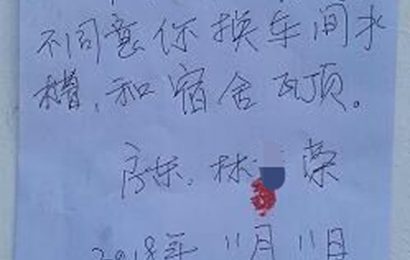 不同意你换车间水
槽，和宿舍瓦顶。
房东．林 荣
2018年 11月11日